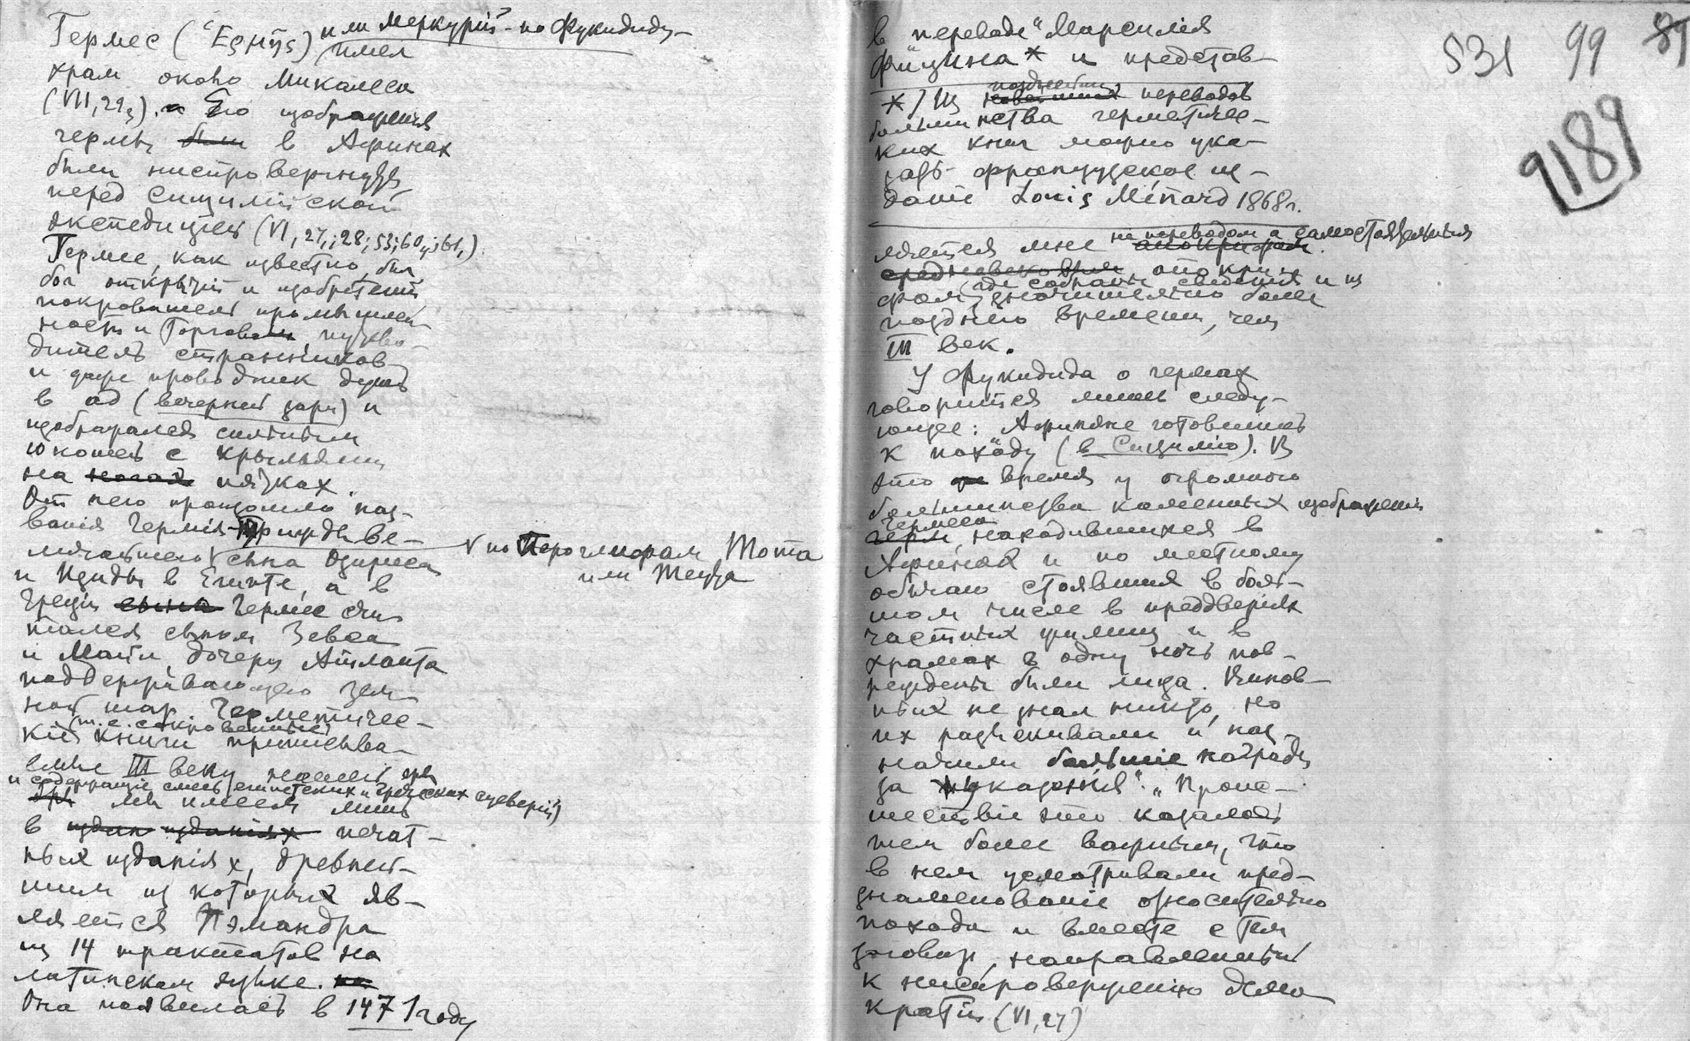 Гермес (Ἑρμῆς) или Меркурий - по Фукидиду
имел
храм около Микалесса
(VII, 29₃). Его изображения
гермы были в Афинах
были ниспровергнуты
перед сицилийской
экспедицией (VI, 27₁; 28; 53; 60₄; 61₁).
Гермес, как известно, был
бог открытий и изобретений
покровитель промышлен-
ности и торговли, путево-
дитель странников
и даже проводник душ
в ад (вечерней зари) и
изображался сильным
юношей с крыльями
на ногах пятках.
От него произошло наз-
вание Гермия-Трижды ве-
личайшего V сына Озириса
V по иероглифам Тота
или Теута
и Изиды в Египте, а в
Греции сына Гермес счи-
тался сыном Зевса
и Майи, дочери Атланта
поддерживающего зем-
ной шар. Герметичес-
(т.е. сокровенные)
кие книги приписыва-
емые III веку нашей эры
и содержащие смесь египетских и греческих суеверий)
мы имеем лишь
в изданиях печат-
ных изданиях, древней-
шим из которых яв-
ляется Пэмандра
из 14 трактатов на
латинском языке.
Она появилась в 1471 году
531 99 89
9189
в переводе Марсилия
Фицина* и представ-
*) Из позднейших переводов
большинства герметичес-
ких книг можно ука-
зать французское из-
дание Louis Ménard 1868 г.
ляется мне не переводом а самостоятельным
апокри-
фом, где собраны сведения и из
значительно более
позднего времени, чем
III век.
У Фукидида о гермах
говорится лишь следу-
ющее: Афиняне готовились
к походу (в Сицилию). В
это время у огромного
большинства каменных изображений
Гермеса
герм, находившихся в
Афинах и по местному
обычаю стоявших в боль-
шом числе в преддвериях
частных жилищ и в
храмах в одну ночь пов-
реждены были лица. Винов-
ных не знал никто, но
их разыскивали и наз-
начили большие награды
за указания". „Проис-
шествие это казалось
тем более важным, что
в нем усматривали пред-
знаменование относительно
похода и вместе с тем
заговор, направленный
к ниспровержению демо-
кратии (VI, 27)